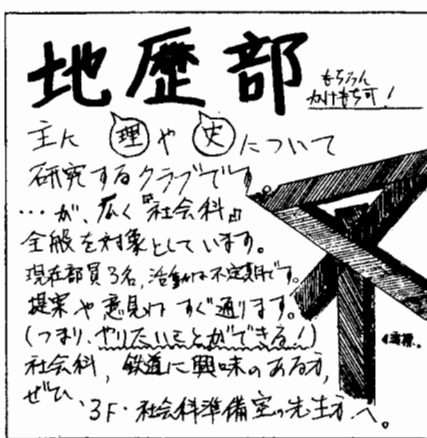 地歴部
もちろん
かけもち可!
主に理や史について
研究するクラブです
…が、広く『社会科』
全般を対象としています。
現在部員3名,活動は不定期です。
提案や意見はすぐ通ります。
(つまり、やりたいことができる!)
社会科,鉄道に興味のある方,
ぜひ、3F・社会科準備室の先生方へ。